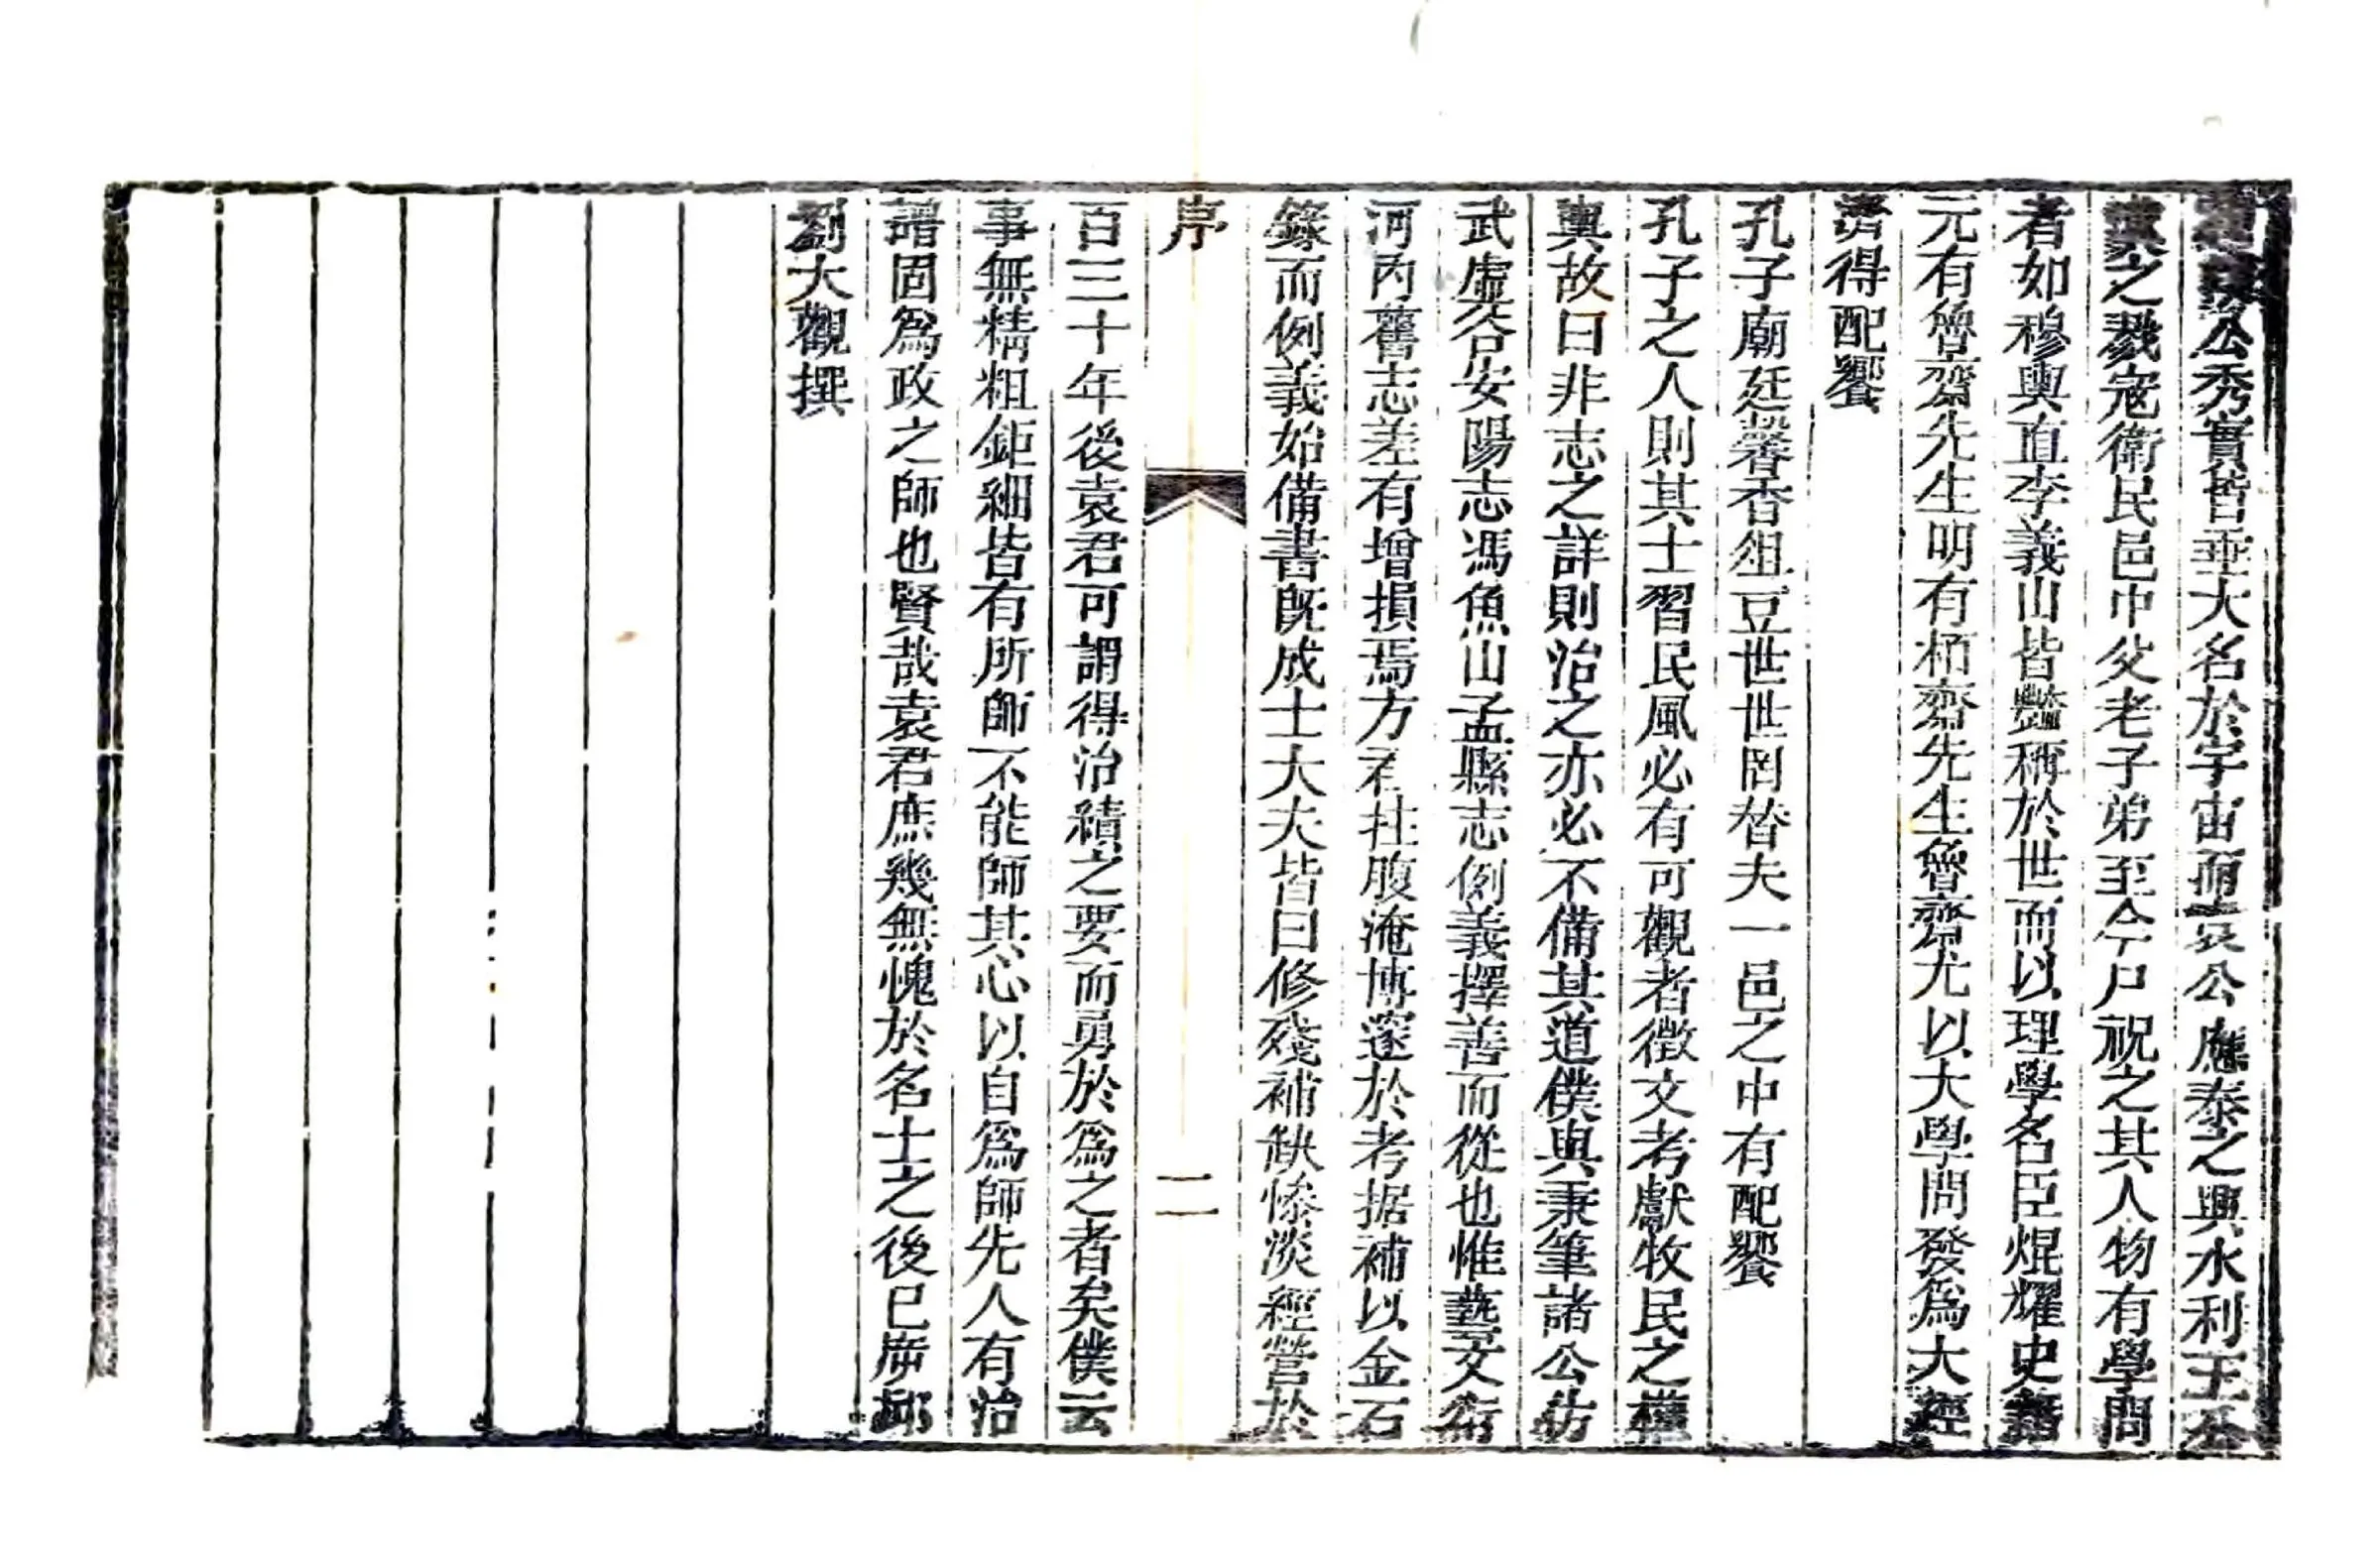 公秀實皆垂大名於宇宙而袁公應泰之興水利王公
漢之戮寇衛民邑中父老子弟至今尸祝之其人物有學問
者如穆與直李義山皆豔稱於世而以理學名臣焜耀史
元有魯齋先生明有栢齋先生魯齋尤以大學問發爲大經
濟得配饗
孔子廟廷馨香俎豆世世罔替夫一邑之中有配饗
孔子之人則其士習民風必有可觀者徵文考獻牧民之權
輿故曰非志之詳則治之亦必不備其道僕與秉筆諸公仿
武虛谷安陽志馮魚山孟縣志例義擇善而從也惟藝文衛
河內舊志差有增損焉方君拄腹淹博邃於考据補以金石
錄而例義始備書旣成士大夫皆曰修殘補缺慘淡經營於
序
二
百三十年後袁君可謂得治績之要而勇於爲之者矣僕云
事無精粗鉅細皆有所師不能師其心以自爲師先人有治
譜固爲政之師也賢哉袁君庶幾無愧於名士之後已𢉙邱
劉大觀撰